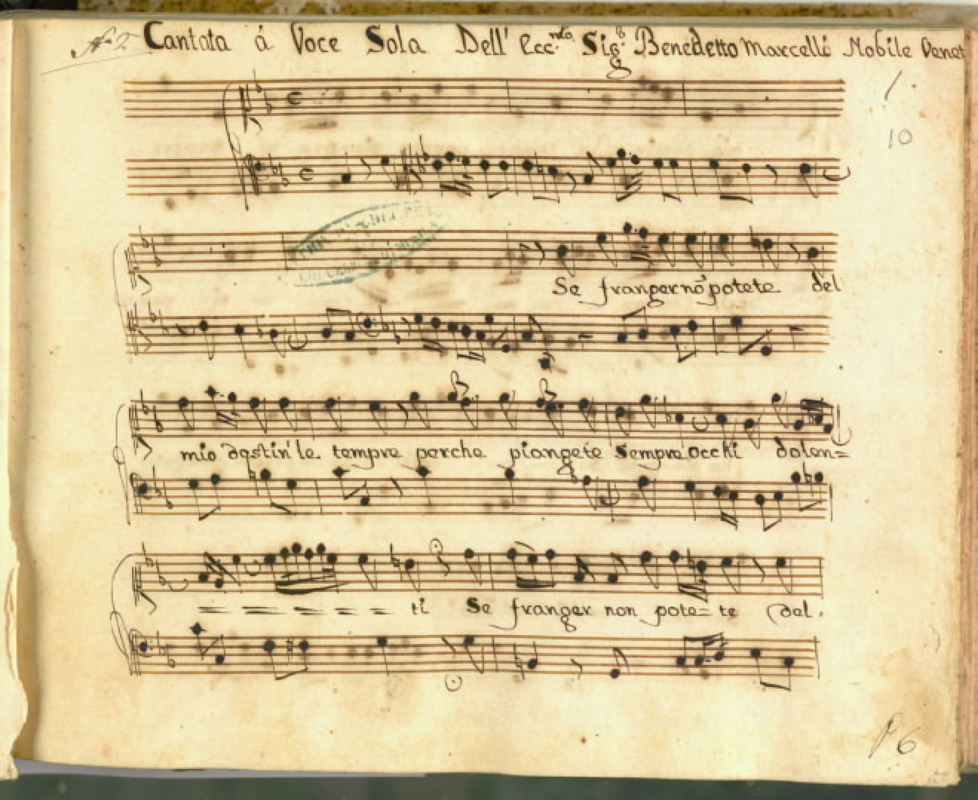 N.º 2. Cantata á Voce Sola Dell' Ecc.mo Sig.r Benedetto Marcelli Nobile Venet
1
10
Se franger nõ potete del
mio destin' le tempre perche piangete Sempre occhi dolen=
= = = = = = = ti Se franger non pote=te del.
P 6